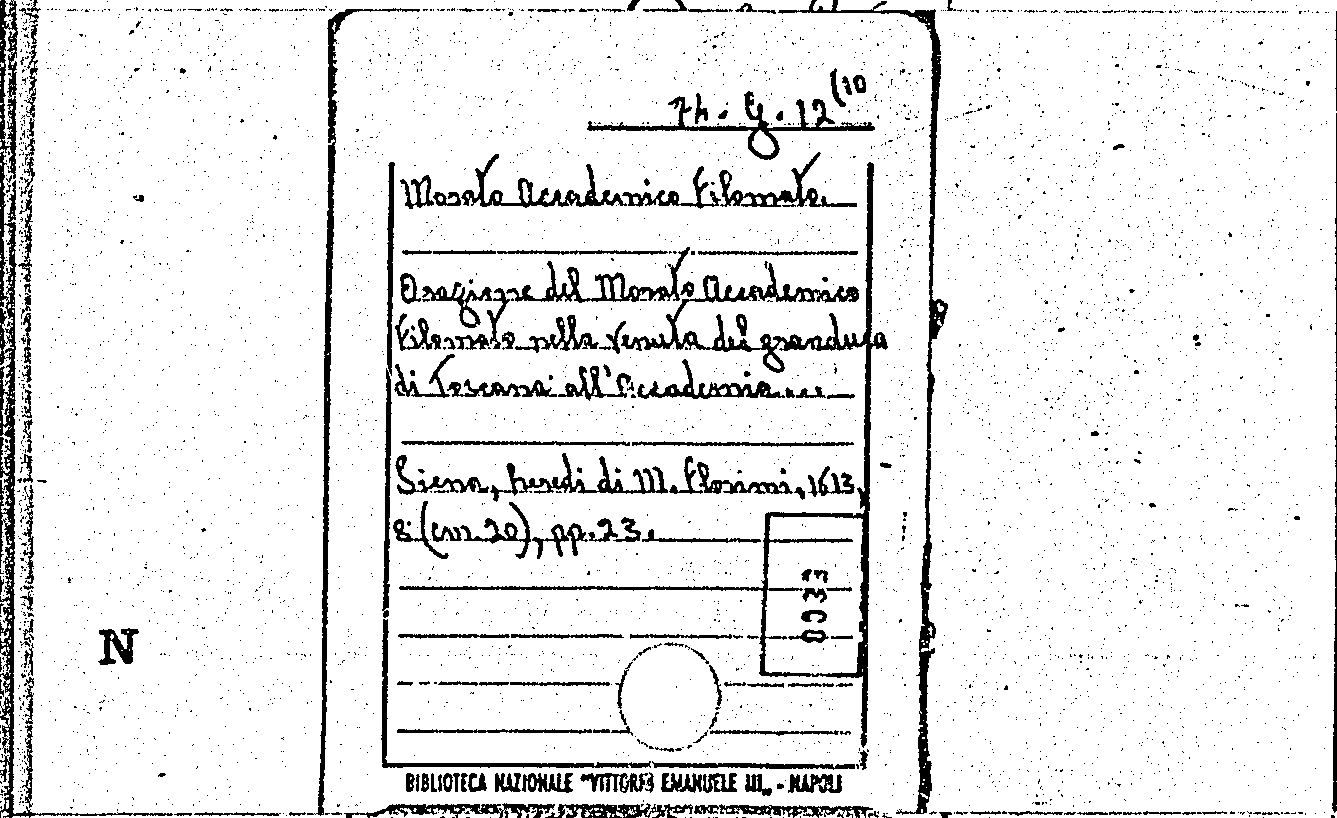 74. G. 12 (10
Morato Accademico Filomato.
Orazione del Morato Accademico
Filomato nella venuta del granduca
di Toscana all'Accademia....
Siena, heredi di M. Florimi, 1613,
8 (cm. 20), pp. 23.
N
BIBLIOTECA NAZIONALE "VITTORIO EMANUELE III„ - NAPOLI